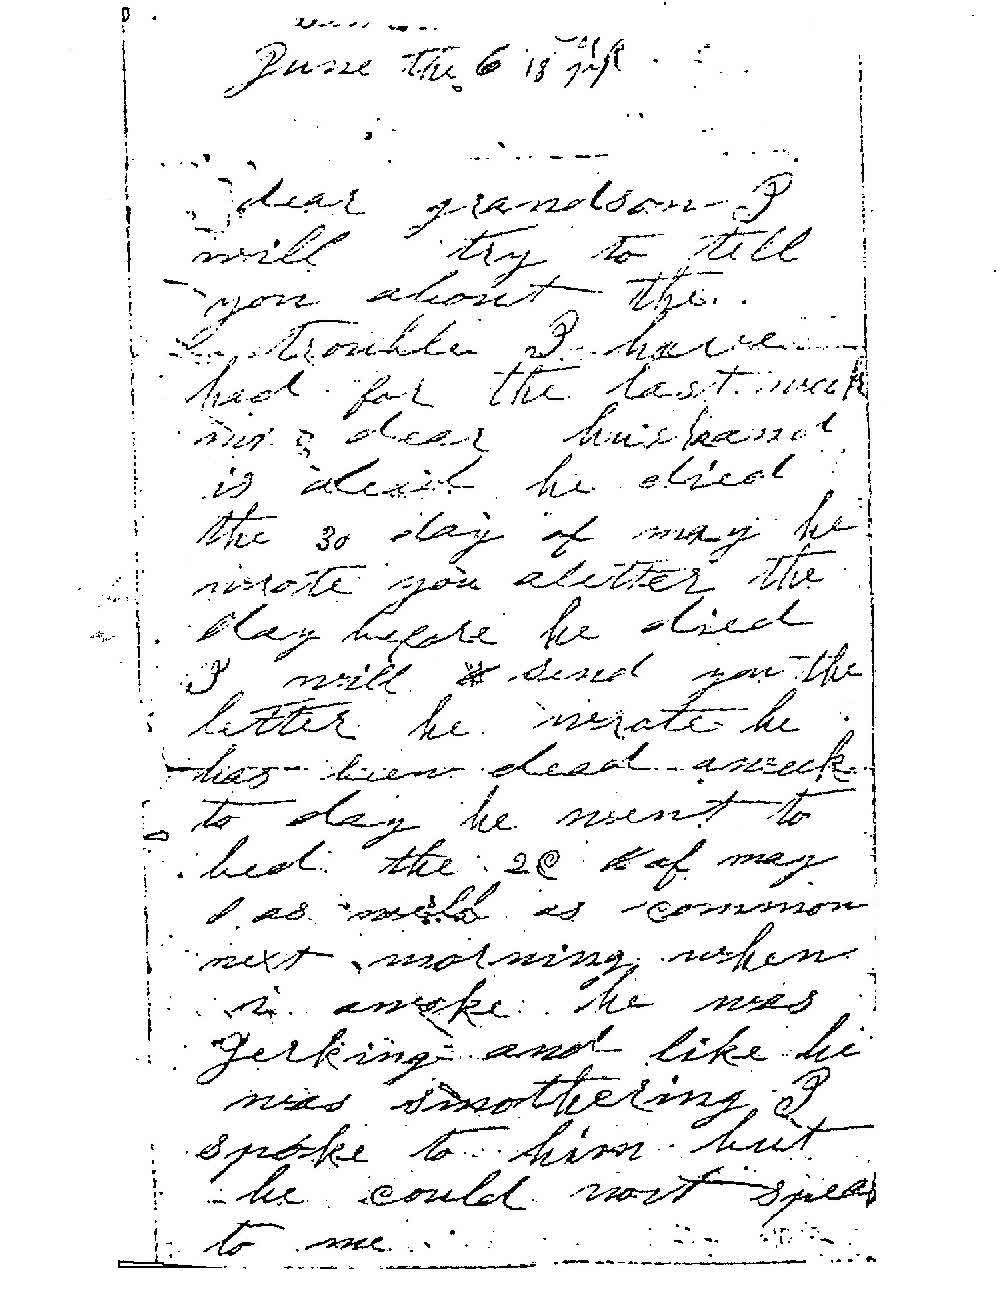 June the 6 18
dear grandson I
will try to tell
you about the
trouble I have
had for the last week
my dear husband
is dead he died
the 30 day of may he
wrote you aletter the
day before he died
I will send you the
letter he wrote he
has been dead aweek
to day he went to
bed the of may
as well as common
next morning when
i awoke he was
Jerking and like he
was smothering I
spoke to him but
he could nort speak
to me